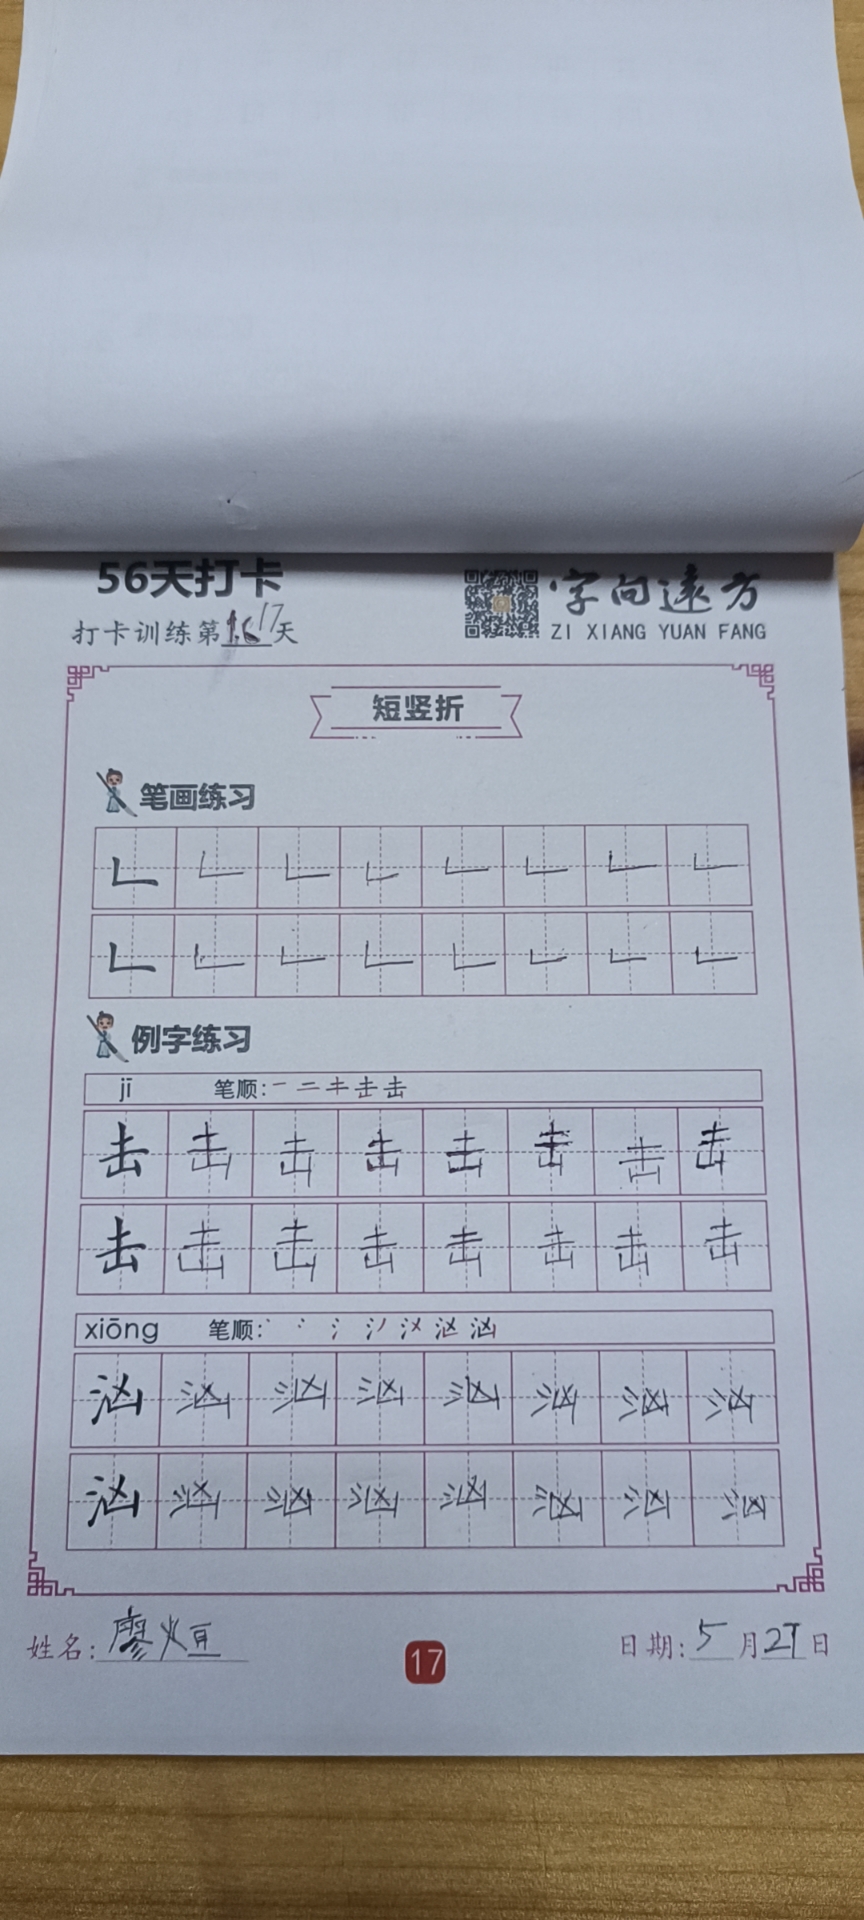 56天打卡
字向遠方
打卡训练第17天
ZI XIANG YUAN FANG
短竖折
笔画练习
例字练习
jī 笔顺:
击 击 击 击 击 击 击 击
击 击 击 击 击 击 击 击
xiōng 笔顺:
汹 汹 汹 汹 汹 汹 汹 汹
汹 汹 汹 汹 汹 汹 汹 汹
姓名:廖
17
日期:5月27日